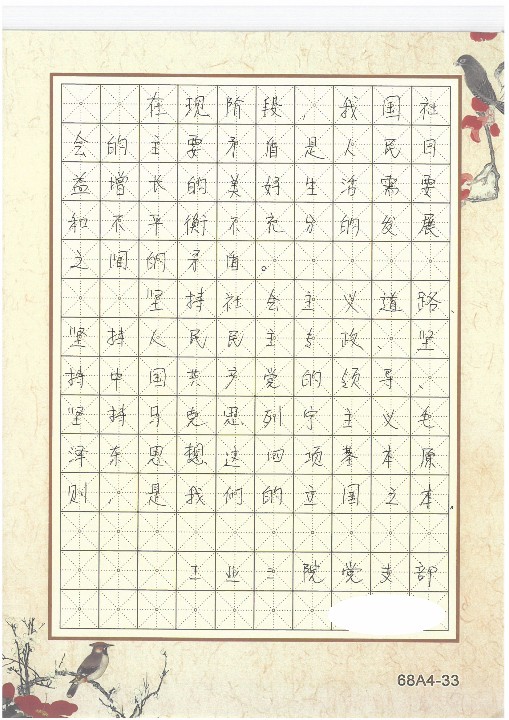 在现阶段,我国社
会的主要矛盾是人民日
益增长的美好生活需要
和不平衡不充分的发展
之间的矛盾。
坚持社会主义道路、
坚持人民民主专政、坚
持中国共产党的领导、
坚持马克思列宁主义毛
泽东思想这四项基本原
则,是我们的立国之本.
工业二院党支部
68A4-33